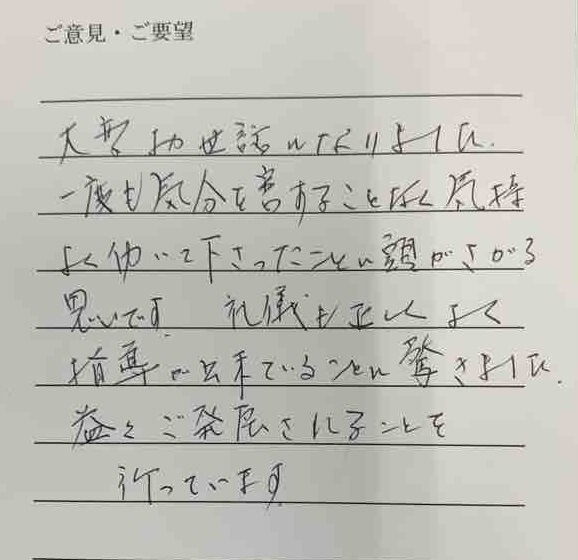 ご意見・ご要望
大変お世話になりました.
一度も気分を害することなく気持
よく働いて下さったことに頭がさがる
思いです. 礼儀も正しくよく
指導が出来ていることに驚きました.
益々ご発展されることを
祈っています